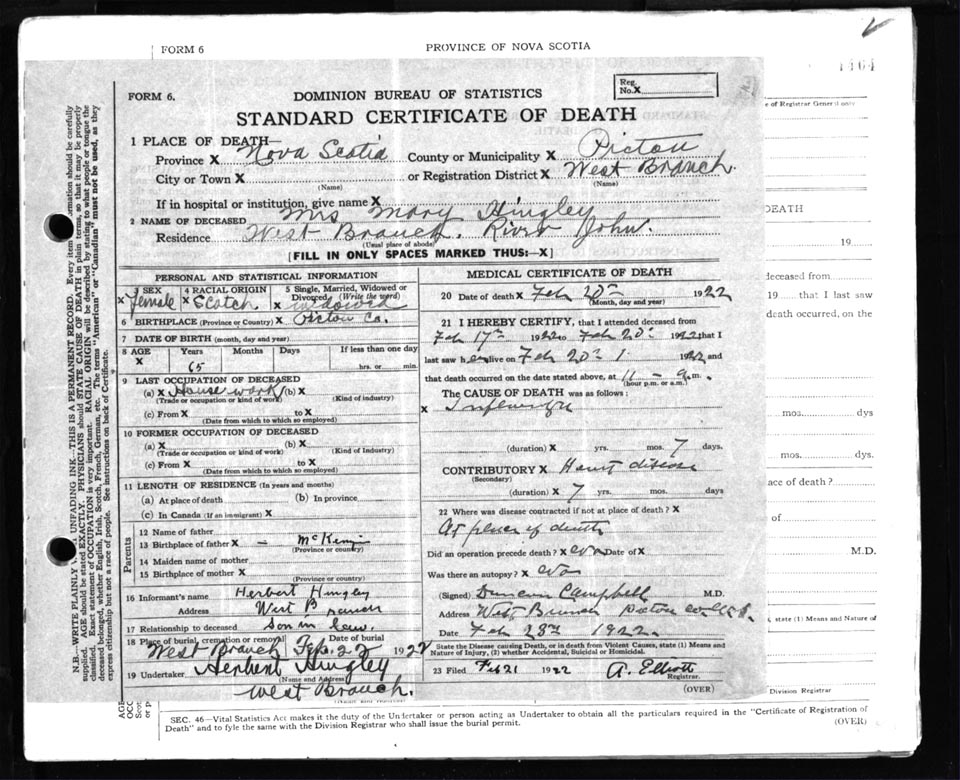 FORM 6
PROVINCE OF NOVA SCOTIA
1404
FORM 6.
DOMINION BUREAU OF STATISTICS
Reg. No. X
STANDARD CERTIFICATE OF DEATH
1 PLACE OF DEATH
Province X Nova Scotia County or Municipality X Pictou
City or Town X or Registration District X West Branch
(Name) (Name)
If in hospital or institution, give name X
2 NAME OF DECEASED Mrs Mary Hingley
Residence West Branch. River John.
(Usual place of abode)
[FILL IN ONLY SPACES MARKED THUS:—X]
PERSONAL AND STATISTICAL INFORMATION
SEX 4 RACIAL ORIGIN 5 Single, Married, Widowed or Divorced (Write the word)
X female X Scotch X widowed
6 BIRTHPLACE (Province or Country) X Pictou Co.
7 DATE OF BIRTH (month, day and year)
8 AGE Years Months Days If less than one day
X 65 hrs. or min.
9 LAST OCCUPATION OF DECEASED
(a) X House work (b) X
(Trade or occupation or kind of work) (Kind of industry)
(c) From X to X
(Date from which to which so employed)
10 FORMER OCCUPATION OF DECEASED
(a) X (b) X
(Trade or occupation or kind of work) (Kind of Industry)
(c) From X to X
(Date from which to which so employed)
11 LENGTH OF RESIDENCE (In years and months)
(a) At place of death (b) In province
(c) In Canada (If an immigrant) X
Parents
12 Name of father
13 Birthplace of father X — McKenzie
(Province or country)
14 Maiden name of mother
15 Birthplace of mother X
(Province or country)
16 Informant's name Herbert Hingley
Address West Branch
17 Relationship to deceased Son in law.
18 Place of burial, cremation or removal Date of burial
West Branch Feb. 22 1922
19 Undertaker Herbert Hingley
(Name and Address)
West Branch.
MEDICAL CERTIFICATE OF DEATH
20 Date of death X Feb 20th 1922
(Month, day and year)
21 I HEREBY CERTIFY, that I attended deceased from
Feb 17th 1922 to Feb 20th 1922 that I
last saw her alive on Feb 20th 1922 and
that death occurred on the date stated above, at 11 - a.m.
(hour p.m. or a.m.)
The CAUSE OF DEATH was as follows:
X Influenza
(duration) X yrs. mos. 7 days.
CONTRIBUTORY X Heart disease
(Secondary)
(duration) X 7 yrs. mos. days.
22 Where was disease contracted if not at place of death? X
At place of death
Did an operation precede death? X no Date of X
Was there an autopsy? X no
(Signed) Duncan Campbell M.D.
Address West Branch Pictou Co N.S.
Date Feb 28th 1922.
State the Disease causing Death, or in death from Violent Causes, state (1) Means and Nature of Injury, (2) whether Accidental, Suicidal or Homicidal.
23 Filed Feb 21 1922 A. Elliott
Registrar.
(OVER)
N.B.—WRITE PLAINLY UNFADING INK—THIS IS A PERMANENT RECORD. Every item information should be carefully
supplied. AGE should be stated EXACTLY. PHYSICIANS should STATE CAUSE OF DEATH in plain terms, so that it may be properly
classified. Exact statement of OCCUPATION is very important. RACIAL ORIGIN will be described by stating to what people or tongue the
deceased belonged, whether English, Irish, Scotch, French, German, etc. The terms "American" or "Canadian" must not be used, as they
express citizenship but not a race of people. See instructions on back of Certificate.
e of Registrar General only
DEATH
19
deceased from
19 that I last saw
death occurred, on the
mos. dys
mos. dys.
ace of death?
of
M.D.
, state (1) Means and Nature of
Division Registrar
SEC. 46—Vital Statistics Act makes it the duty of the Undertaker or person acting as Undertaker to obtain all the particulars required in the "Certificate of Registration of
Death" and to fyle the same with the Division Registrar who shall issue the burial permit.
(OVER)